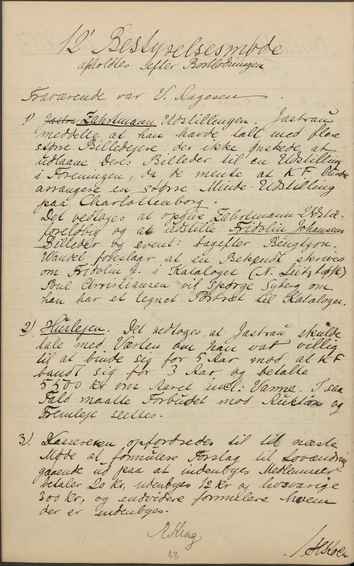 12' Bestyrelsesmøde
afholdtes efter Bortlodningen
Fraværende var V. Aagesen
1) Zahrtmann Udstillingen. Jastrau
meddelte at han havde talt med flere
større Billedejere der ikke ønskede at
udlaane deres Billeder til en Udstilling
i Foreningen, da de mente at K F burde
arrangere en større Minde-Udstilling
paa Charlottenborg.
Det vedtoges at opgive Zahrtmann Udst.
foreløbig og at udstille Fridolin Johansens
Billeder og event: bagefter
foreslaar at en Bekendt skrives
om Fridolin J. i Kataloget
Poul Christiansen vil spørge Syberg om
han har et tegnet Portræt til Katalogen.
2) Huslejen. Det vedtoges at Jastrau skulde
tale med Værten om han var villig
til at binde sig for 5 Aar mod at K F
bandt sig for 3 Aar og betalte
5500 kr om Aaret incl: Varme. I saa
Fald maatte Forbudet mod Auktion og
Fremleje slettes.
3) Kassereren opfordredes til til næste
Møde at formulere Forslag til Lovændring
gaaende ud paa at indenbyes Medlemmer
betaler 20 kr, udenbyes 12 kr og livsvarige
300 kr, og endvidere formulere hvem
der er indenbyes.